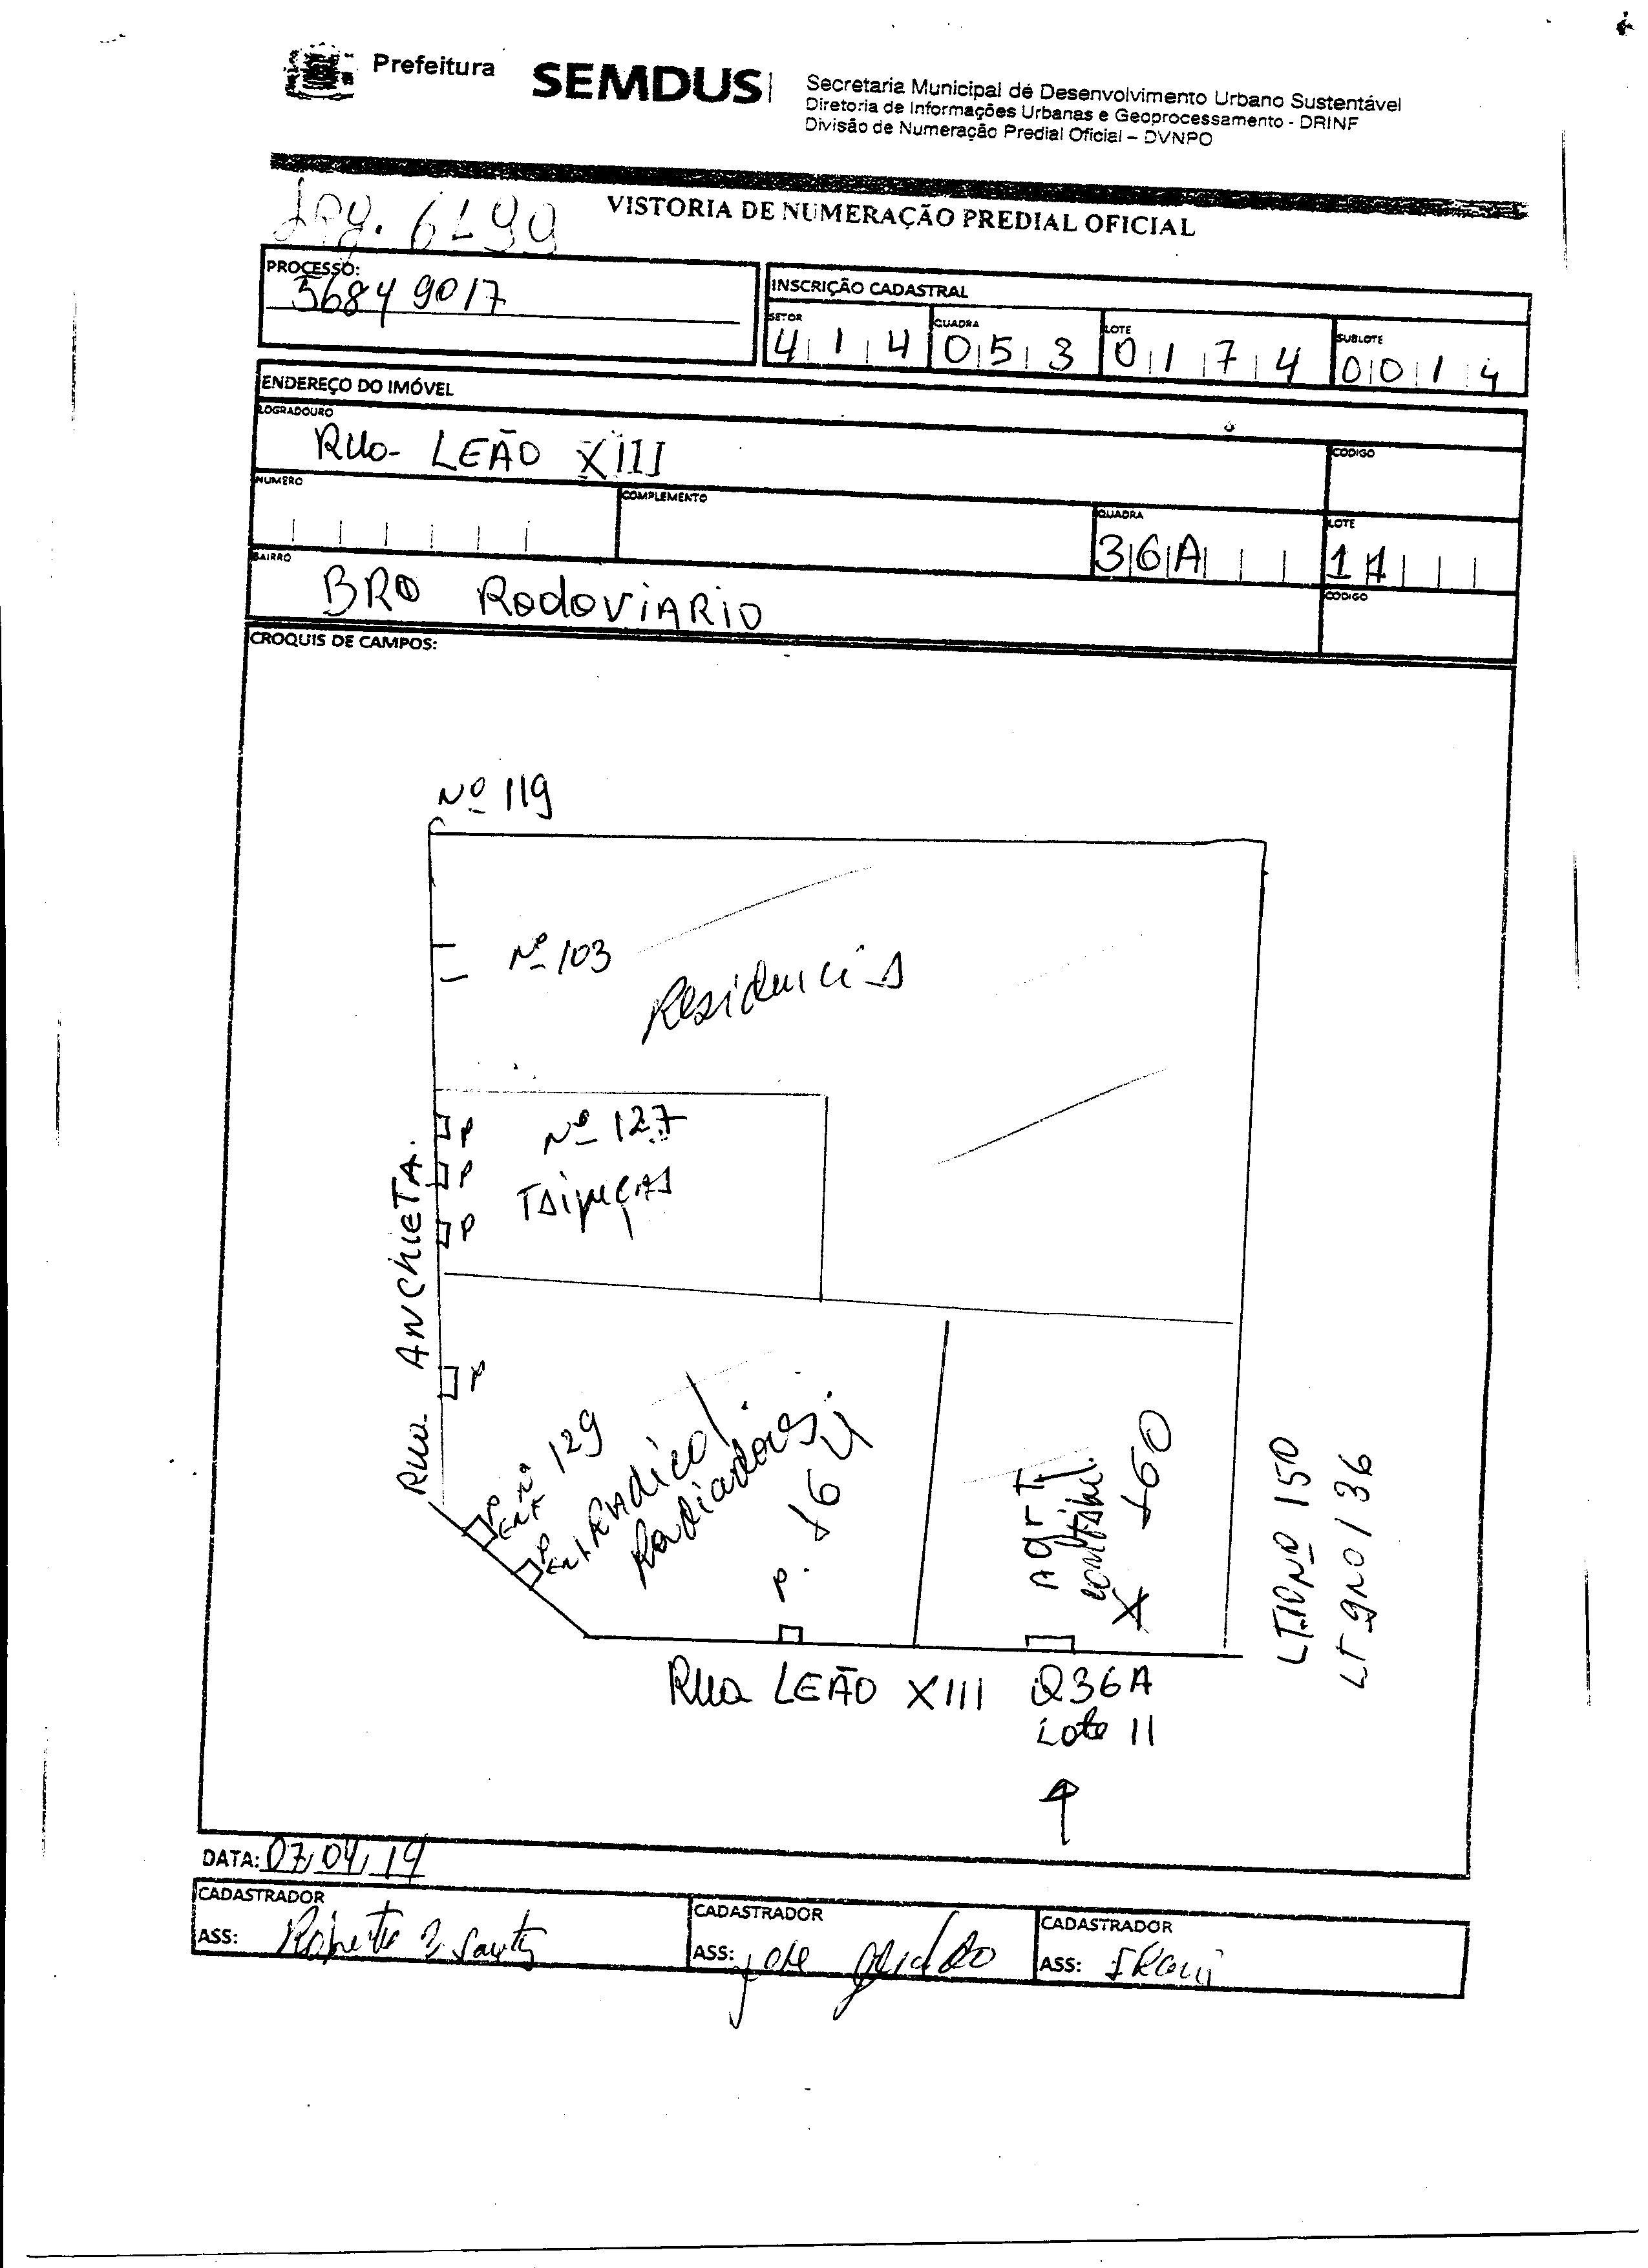 Prefeitura
SEMDUS
Secretaria Municipal de Desenvolvimento Urbano Sustentável
Diretoria de Informações Urbanas e Geoprocessamento - DRINF
Divisão de Numeração Predial Oficial – DVNPO
VISTORIA DE NUMERAÇÃO PREDIAL OFICIAL
PROCESSO:
56849017
INSCRIÇÃO CADASTRAL
SETOR QUADRA LOTE SUBLOTE
414 053 0174 0014
ENDEREÇO DO IMÓVEL
LOGRADOURO
Rua LEÃO XIII
CODIGO
NUMERO
COMPLEMENTO
QUADRA
36A
LOTE
11
BAIRRO
BRO RodoviARiO
CODIGO
CROQUIS DE CAMPOS:
Nº 119
Nº 103
Residencias
P
Nº 127
P
P
Rua ANCHIETA.
P
P
Nº 129
P
Radiadores
P.
164
AgrT
contábil.
160
LT 10 Nº 150
LT 9 Nº 136
Rua LEÃO XIII
Q36A
Lote 11
DATA: 07/04/14
CADASTRADOR
ASS:
CADASTRADOR
ASS: Jose
CADASTRADOR
ASS: